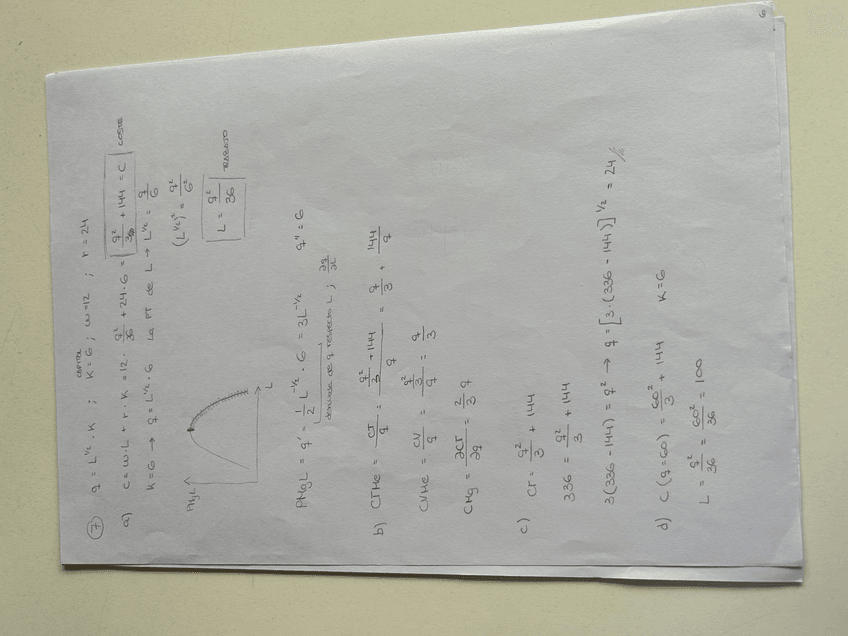 7 q = L^1/2 · K ; K = 6 ; w = 12 ; r = 24
CAPITAL
a) C = w·L + r·K = 12 · q²/36 + 24·6 = q²/3 + 144 = C COSTE
K = 6 → q = L^1/2 · 6 La PT de L → L^1/2 = q/6
(L^1/2)² = q²/6²
L = q²/36 TRABAJO
PMgL
L
PMgL = q' = 1/2 L^-1/2 · 6 = 3L^-1/2 q'' = 6
derivada de q respecto L ; ∂q/∂L
b) CTMe = CT/q = (q²/3 + 144)/q = q/3 + 144/q
CVMe = CV/q = (q²/3)/q = q/3
CMg = ∂CT/∂q = 2/3 q
c) CT = q²/3 + 144
336 = q²/3 + 144
3(336 - 144) = q² → q = [3·(336 - 144)]^1/2 = 24
d) C (q=60) = 60²/3 + 144 K = 6
L = q²/36 = 60²/36 = 100
6